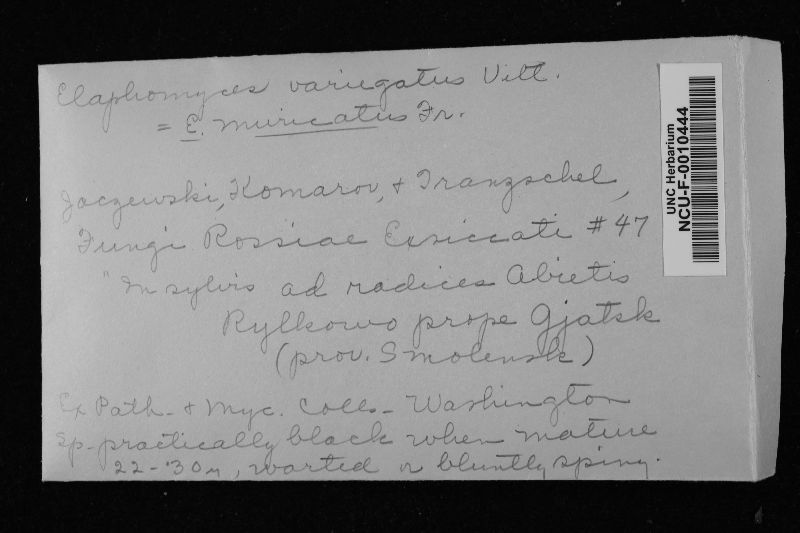 Elaphomyces variegatus Vitt.
= E. muricatus Fr.
Jaczewski, Komarov, & Tranzschel,
Fungi Rossiae Exsiccati #47
"In sylvis ad radices Abietis
Rylkowo prope Gjatsk
(prov. Smolensk)
Ex Path. & Myc. Colls. Washington
Sp. practically black when mature
22-30µ, warted or bluntly spiny.
UNC Herbarium
NCU-F-0010444